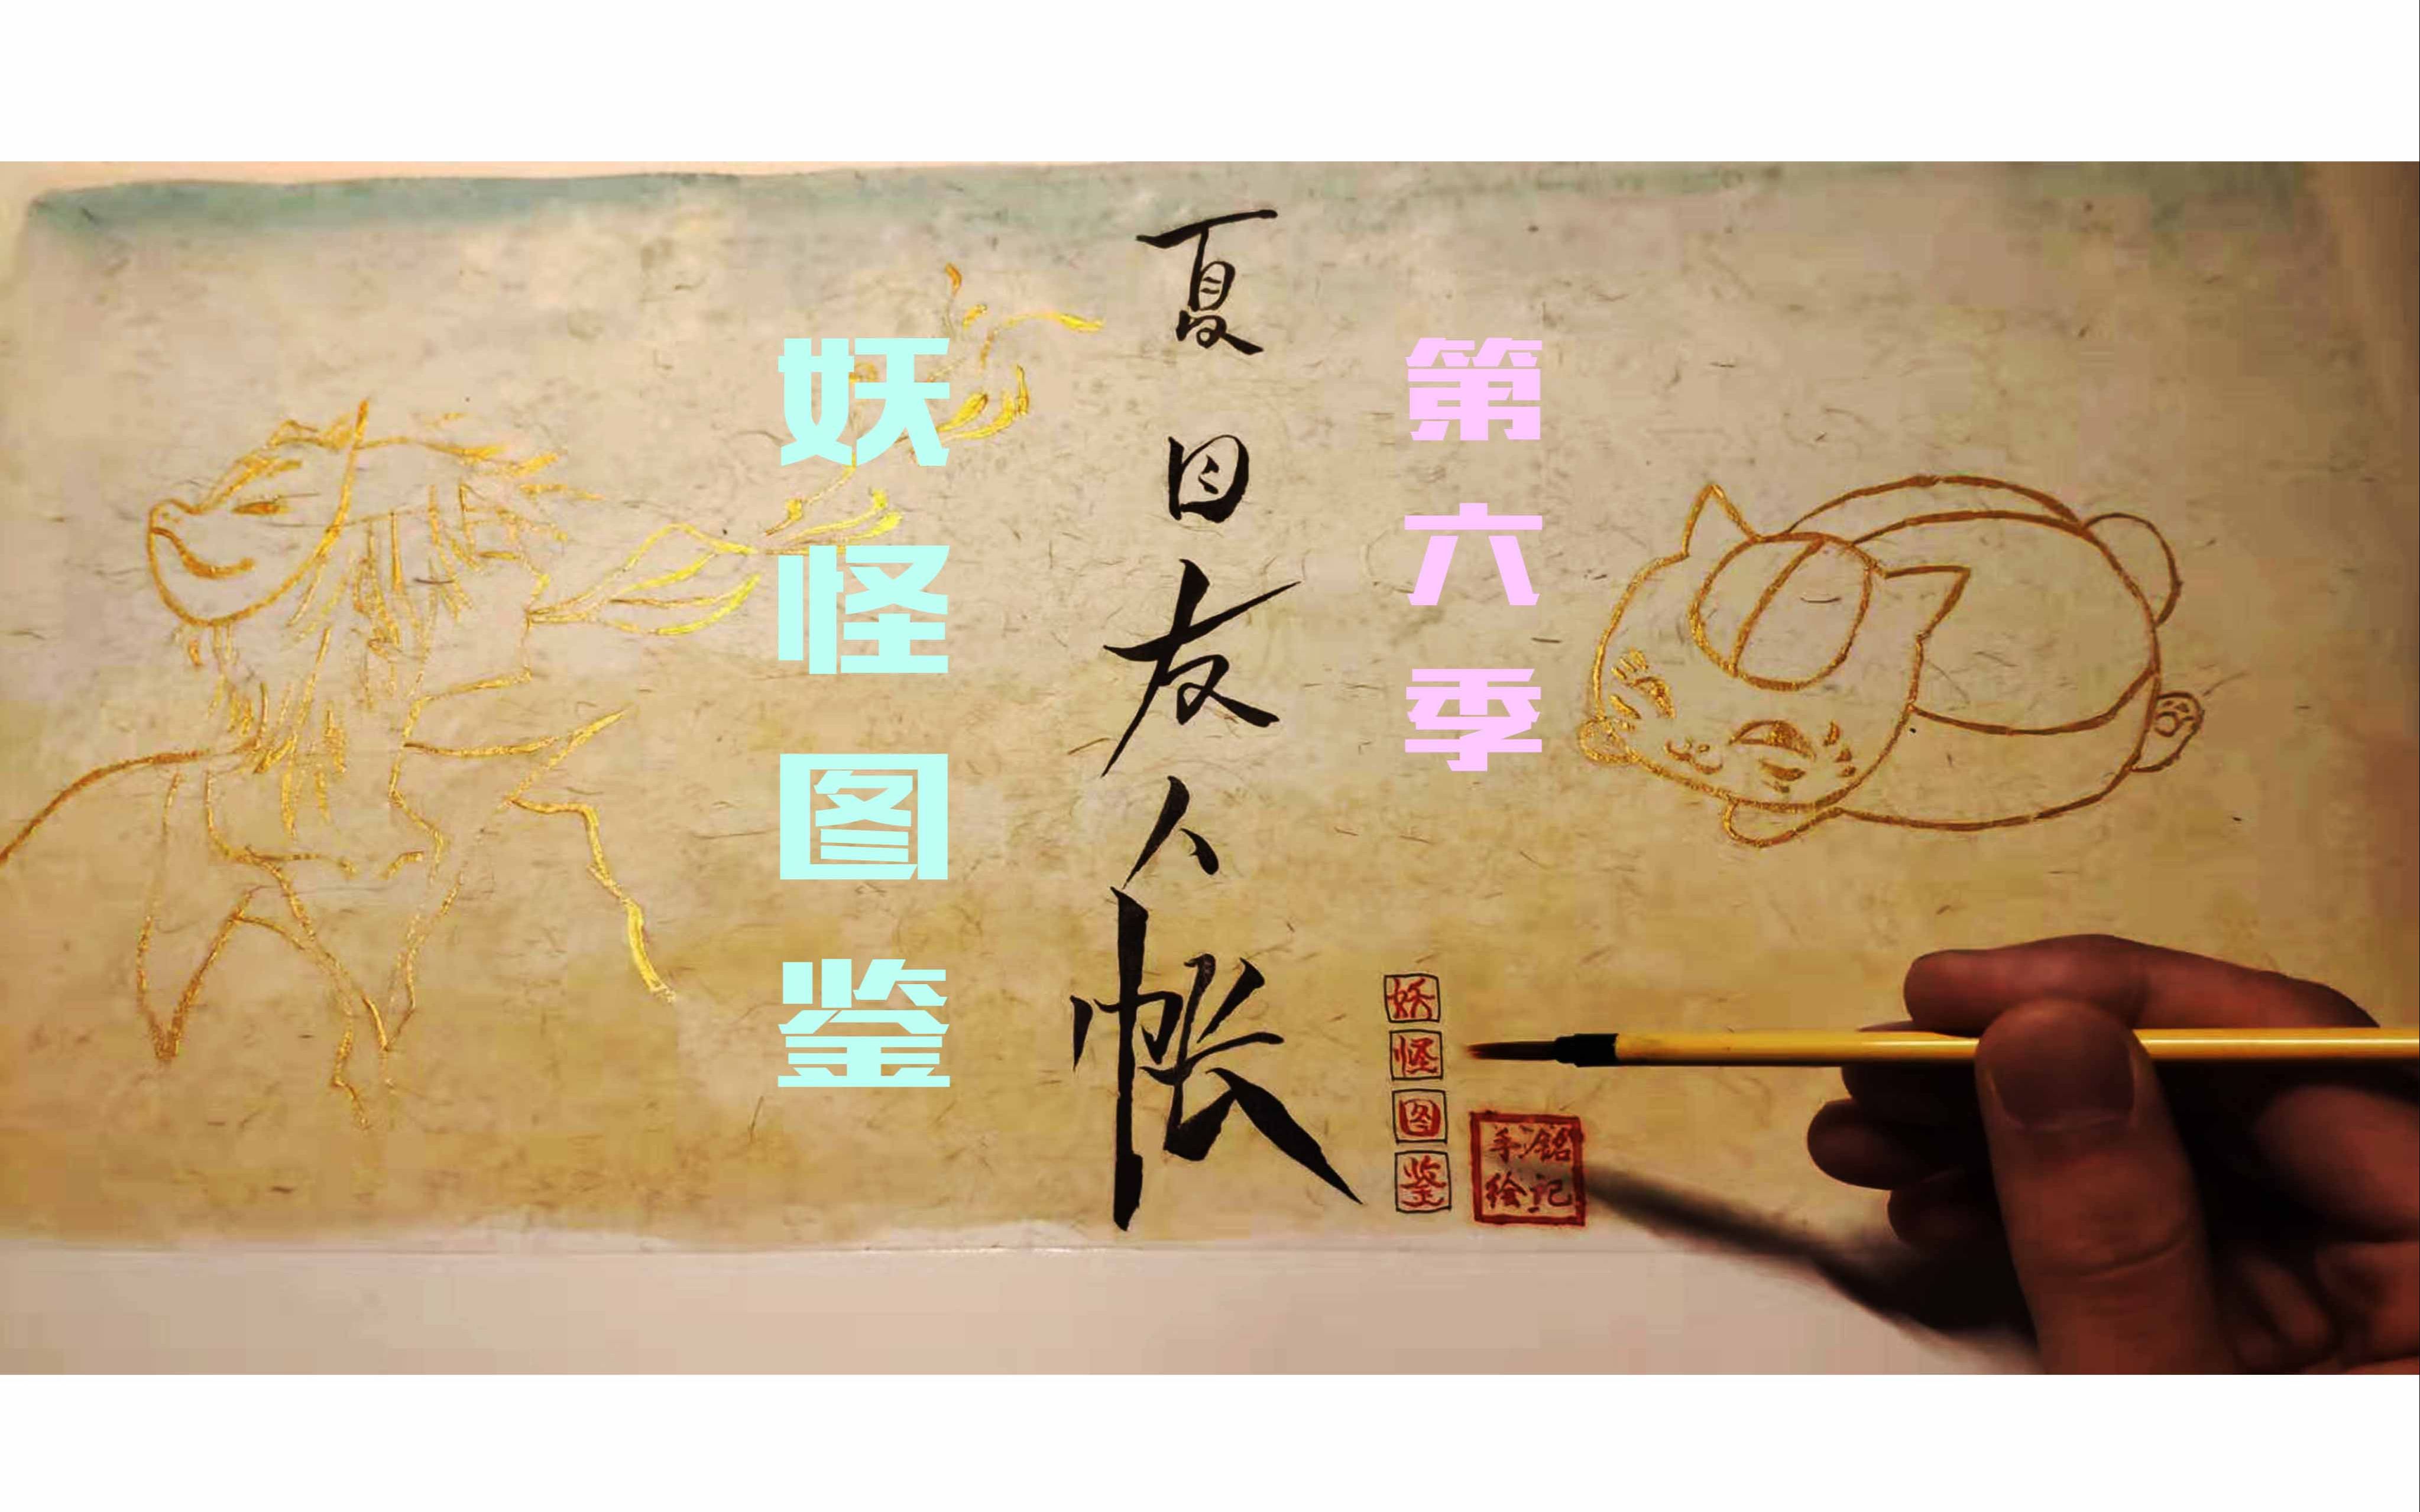 夏目友人帐
妖怪图鉴
第六季
妖怪图鉴
手绘
铭记